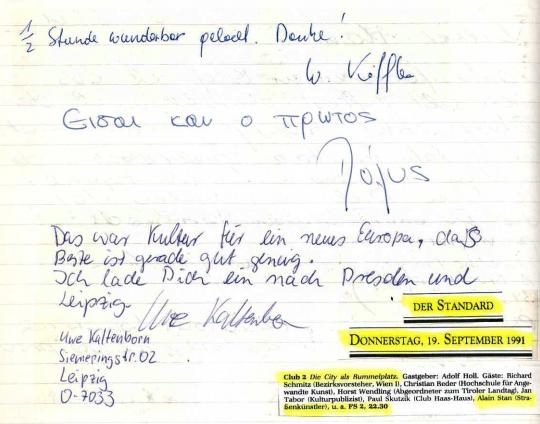 1/2 Stunde wunderbar gelacht. Danke!
W.
Εισαι και ο πρωτος
Das war Kultur für ein neues Europa, daß
Beste ist gerade gut genug.
Ich lade Dich ein nach Dresden und
Leipzig
Uwe Kaltenborn
Uwe Kaltenborn
Siemeringstr. 02
Leipzig
O-7033
DER STANDARD
DONNERSTAG, 19. SEPTEMBER 1991
Club 2 Die City als Rummelplatz. Gastgeber: Adolf Holl. Gäste: Richard
Schmitz (Bezirksvorsteher, Wien I), Christian Reder (Hochschule für Ange-
wandte Kunst), Horst Wendling (Abgeordneter zum Tiroler Landtag), Jan
Tabor (Kulturpublizist), Paul Skutzik (Club Haas-Haus), Alain Stan (Stra-
ßenkünstler), u. a. FS 2, 22.30